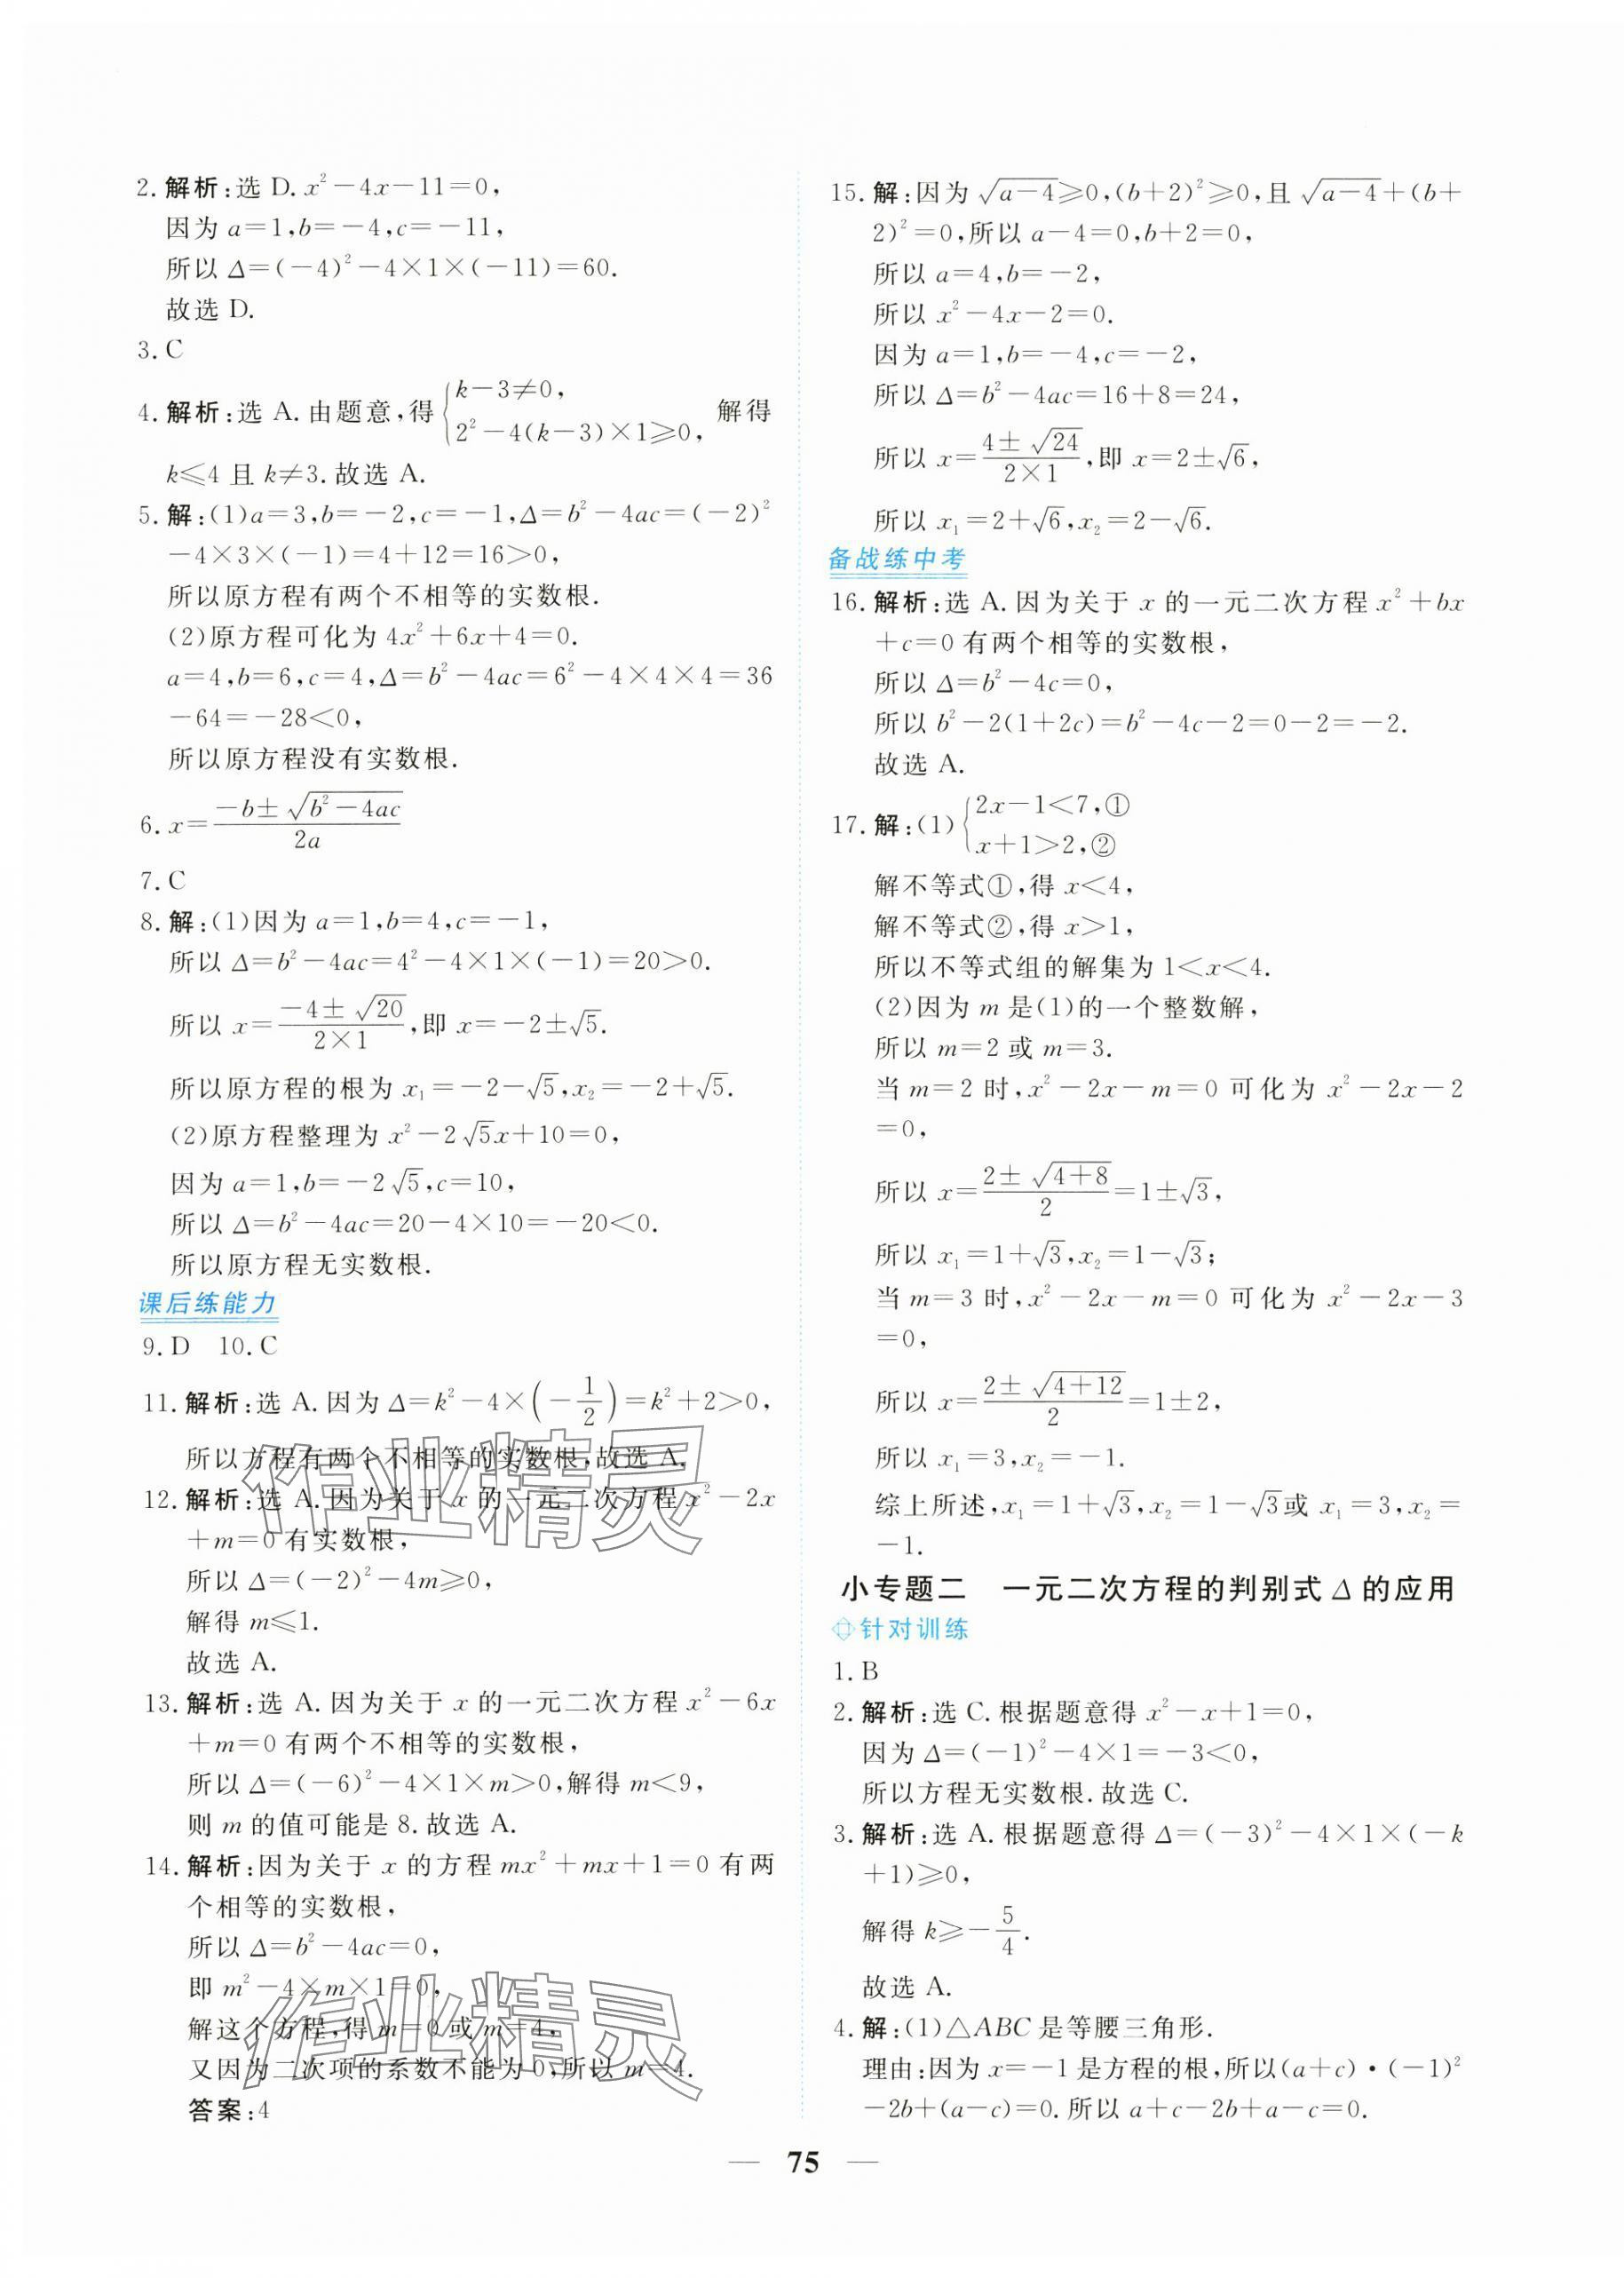 2. 解析:选 D. x²-4x-11=0,
因为 a=1,b=-4,c=-11,
所以 Δ=(-4)²-4×1×(-11)=60.
故选 D.
3. C
4. 解析:选 A. 由题意,得{k-3≠0, 2²-4(k-3)×1≥0, 解得
k≤4 且 k≠3. 故选 A.
5. 解:(1)a=3,b=-2,c=-1,Δ=b²-4ac=(-2)²
-4×3×(-1)=4+12=16>0,
所以原方程有两个不相等的实数根.
(2)原方程可化为 4x²+6x+4=0.
a=4,b=6,c=4,Δ=b²-4ac=6²-4×4×4=36
-64=-28<0,
所以原方程没有实数根.
6. x=(-b±√(b²-4ac))/2a
7. C
8. 解:(1)因为 a=1,b=4,c=-1,
所以 Δ=b²-4ac=4²-4×1×(-1)=20>0.
所以 x=(-4±√20)/(2×1),即 x=-2±√5.
所以原方程的根为 x₁=-2-√5,x₂=-2+√5.
(2)原方程整理为 x²-2√5x+10=0,
因为 a=1,b=-2√5,c=10,
所以 Δ=b²-4ac=20-4×10=-20<0.
所以原方程无实数根.
课后练能力
9. D 10. C
11. 解析:选 A. 因为 Δ=k²-4×(-1/2)=k²+2>0,
所以方程有两个不相等的实数根,故选 A.
12. 解析:选 A. 因为关于 x 的一元二次方程 x²-2x
+m=0 有实数根,
所以 Δ=(-2)²-4m≥0,
解得 m≤1.
故选 A.
13. 解析:选 A. 因为关于 x 的一元二次方程 x²-6x
+m=0 有两个不相等的实数根,
所以 Δ=(-6)²-4×1×m>0,解得 m<9,
则 m 的值可能是 8. 故选 A.
14. 解析:因为关于 x 的方程 mx²+mx+1=0 有两
个相等的实数根,
所以 Δ=b²-4ac=0,
即 m²-4×m×1=0,
解这个方程,得 m=0 或 m=4,
又因为二次项的系数不能为 0,所以 m=4.
答案:4
15. 解:因为 √(a-4)≥0,(b+2)²≥0,且 √(a-4)+(b+
2)²=0,所以 a-4=0,b+2=0,
所以 a=4,b=-2,
所以 x²-4x-2=0.
因为 a=1,b=-4,c=-2,
所以 Δ=b²-4ac=16+8=24,
所以 x=(4±√24)/(2×1),即 x=2±√6,
所以 x₁=2+√6,x₂=2-√6.
备战练中考
16. 解析:选 A. 因为关于 x 的一元二次方程 x²+bx
+c=0 有两个相等的实数根,
所以 Δ=b²-4c=0,
所以 b²-2(1+2c)=b²-4c-2=0-2=-2.
故选 A.
17. 解:(1){2x-1<7,① x+1>2,②
解不等式①,得 x<4,
解不等式②,得 x>1,
所以不等式组的解集为 1<x<4.
(2)因为 m 是(1)的一个整数解,
所以 m=2 或 m=3.
当 m=2 时,x²-2x-m=0 可化为 x²-2x-2
=0,
所以 x=(2±√(4+8))/2=1±√3,
所以 x₁=1+√3,x₂=1-√3;
当 m=3 时,x²-2x-m=0 可化为 x²-2x-3
=0,
所以 x=(2±√(4+12))/2=1±2,
所以 x₁=3,x₂=-1.
综上所述,x₁=1+√3,x₂=1-√3或 x₁=3,x₂=
-1.
小专题二 一元二次方程的判别式 Δ 的应用
针对训练
1. B
2. 解析:选 C. 根据题意得 x²-x+1=0,
因为 Δ=(-1)²-4×1=-3<0,
所以方程无实数根. 故选 C.
3. 解析:选 A. 根据题意得 Δ=(-3)²-4×1×(-k
+1)≥0,
解得 k≥-5/4.
故选 A.
4. 解:(1)△ABC 是等腰三角形.
理由:因为 x=-1 是方程的根,所以(a+c)·(-1)²
-2b+(a-c)=0. 所以 a+c-2b+a-c=0.
— 75 —
作业精灵
作业精灵